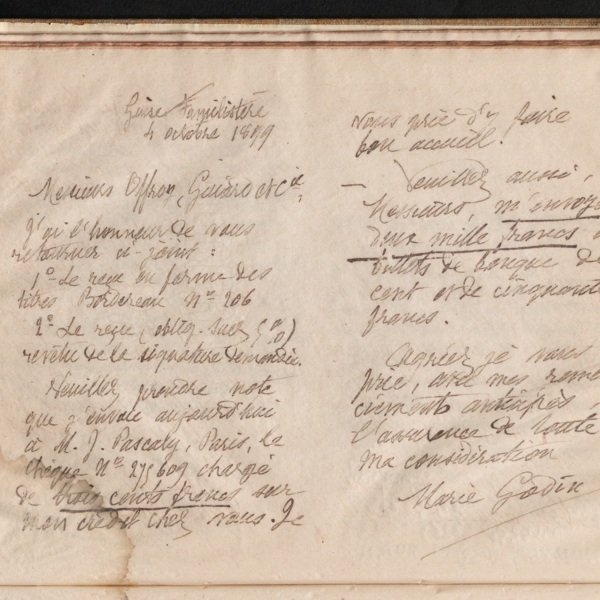 Guise Familistère
4 octobre 1899
Messieurs Offroy, Guiard et Cie
J'ai l'honneur de vous
retourner ci-joint :
1º Le reçu en forme des
titres Bordereau Nº 206
2º Le reçu (oblig. Suez 5 %)
revêtu de la signature demandée.
Veuillez prendre note
que j'envoie aujourd'hui
à M. J. Pascaly, Paris, le
chèque Nº 275609 chargé
de trois cents francs sur
mon crédit chez vous. Je
vous prie d'y faire
bon accueil.
— Veuillez aussi,
Messieurs, m'envoye
deux mille francs
billets de banque de
cent et de cinquante
francs.
Agréez je vous
prie, avec mes remer
ciements anticipés,
l'assurance de toute
ma considération
Marie Godin